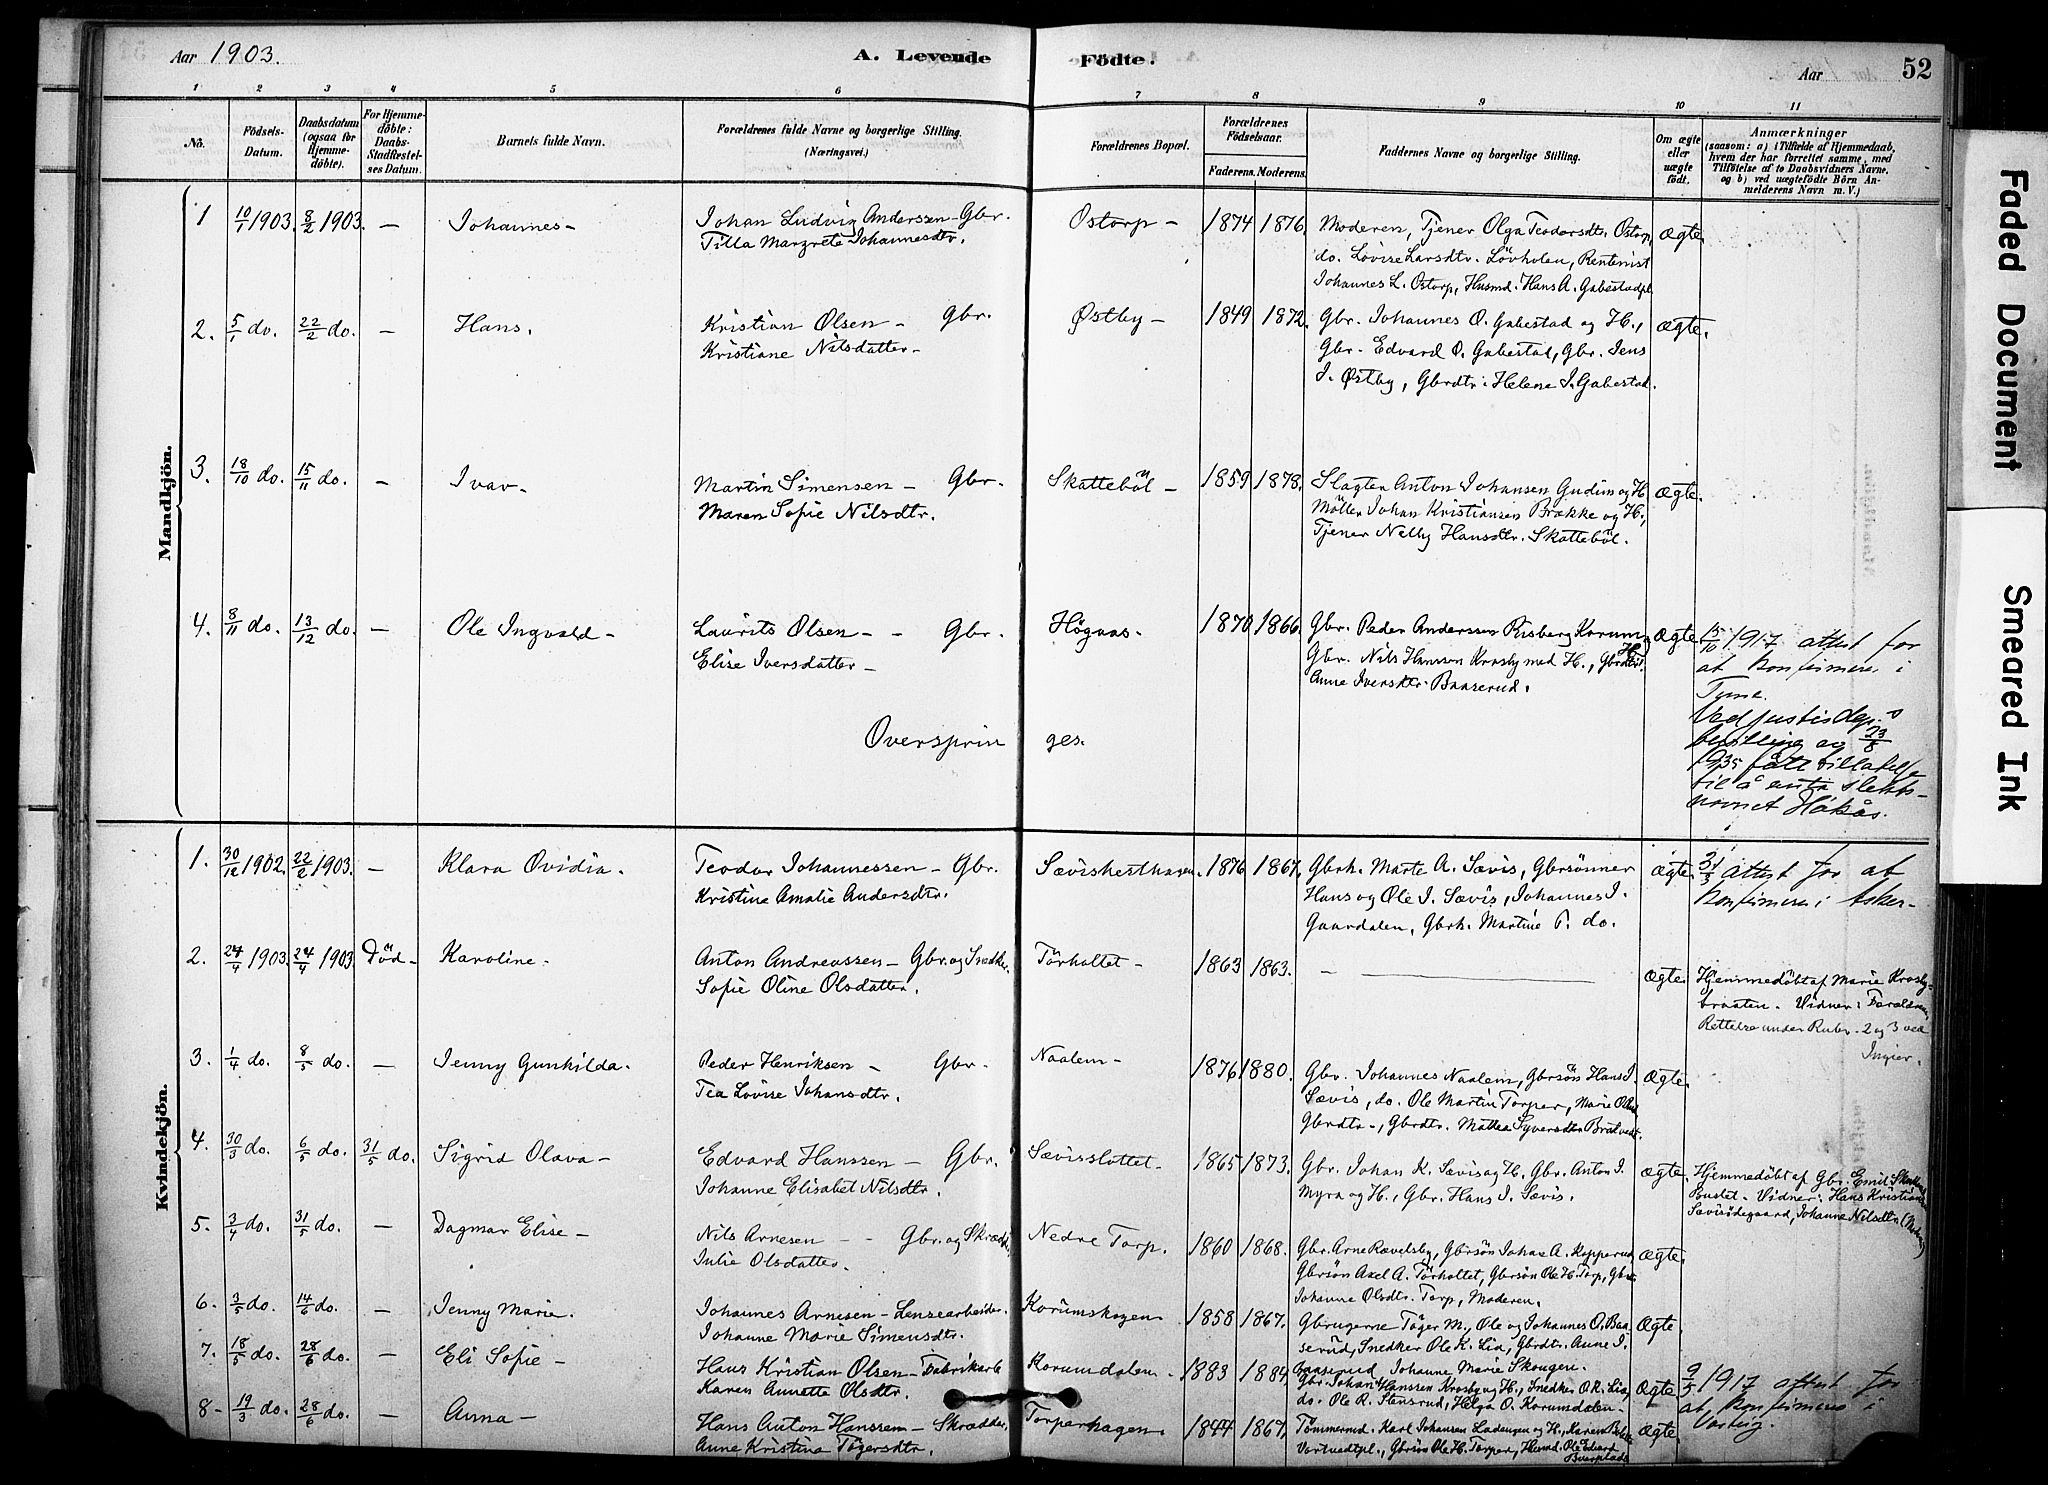 Aar 1903.
A. Levende Födte.
Aar
52
1 2 3 4 5 6 7 8 9 10 11
No.
Födsels-Datum.
Daabsdatum (ogsaa for Hjemme-döbte).
For Hjemme-döbte: Daabs-Stadfæstel-ses Datum.
Barnets fulde Navn.
Forældrenes fulde Navne og borgerlige Stilling.
(Næringsvei.)
Forældrenes Bopæl.
Forældrenes Födselsaar.
Faderens. Moderens.
Faddernes Navne og borgerlige Stilling.
Om ægte eller uægte födt.
Anmærkninger
(saasom: a) i Tilfælde af Hjemmedaab,
hvem der har forrettet samme, med
Tilföielse af to Daabsvidners Navne,
og b) ved uægtefödte Börn An-
melderens Navn m. V.)
Mandkjön.
1 10/1 1903. 8/2 1903. — Johannes— Johan Ludvig Anderssen — Gbr. Ostorp — 1874 1876. Moderen, Tjener Olga Teodorsdtr. Ostorp, Ægte.
Tilla Margrete Johannesdtr. do. Lovise Larsdtr. Lövholen, Rentenist
Johannes L. Ostorp, Husmd. Hans A. Gabestadpl.
2. 5/1 do. 22/2 do. — Hans. Kristian Olsen — Gbr. Østby — 1849 1872. Gbr. Johannes O. Gabestad og H., Ægte.
Kristiane Nilsdatter — Gbr. Edvard O. Gabestad, Gbr. Jens
I. Østby, Gbrdtr. Helene I. Gabestad.
3. 18/10 do. 15/11 do. — Ivar — Martin Simensen — Gbr. Skatteböl — 1859 1878. Slagter Anton Johansen Gudim og H. Ægte.
Maren Sofie Nilsdtr. Möller Johan Kristiansen Brække og H.,
Tjener Nelly Hansdtr. Skatteböl.
4. 8/11 do. 13/12 do. — Ole Ingvald — Laurits Olsen — Gbr. Högaas. 1870 1866. Gbr. Peder Anderssen Risberg Korum Ægte. 15/10 1917 attest for
Elise Iversdatter — Gbr. Nils Hanssen Krosby med H., Gbrdtr. at konfirmere i
Anne Iversdtr. Baaserud. Tjøme.
Oversprin ges.
Ved justisdep.s
bevilling av 23/8
1935 fått tillatelse
til å anta slekts-
navnet Håkås.
Kvindekjön.
1. 30/12 1902. 22/2 1903. — Klara Ovidia. Teodor Johannessen — Gbr. Sævishesthagen. 1876 1867. Gbrk. Marte A. Sævis, Gbrsönner Ægte. 31/3 attest for at
Kristine Amalie Andersdtr. Hans og Ole I. Sævis, Johannes I. konfirmere i Asker.
Gaardalen, Gbrk. Martine P. do.
2. 24/4 1903. 24/4 1903. Död— Karoline — Anton Andreassen — Gbr. og Snedker. Törholtet — 1863 1863. — Ægte. Hjemmedöbt af Marie Krosby-
Sofie Oline Olsdatter. braaten. Vidner: Forældrene
Rettelse under Rubr. 2 og 3 ved
Ingier.
3. 1/4 do. 8/5 do. — Jenny Gunhilda. Peder Henriksen — Gbr. Naalem — 1876 1880. Gbr. Johannes Naalem, Gbrsön Hans I. Ægte.
Tea Lovise Johansdtr. Sævis, do. Ole Martin Torper, Marie
Gbrdtr., Gbrdtr. Mathea Syversdtr. Bratvedt.
4. 30/3 do. 6/5 do. 31/5 do. Sigrid Olava — Edvard Hanssen — Gbr. Sævisslottet. 1865 1873. Gbr. Johan K. Sævis og H. Gbr. Anton I. Ægte. Hjemmedöbt af Gbr. Emil
Johanne Elisabet Nilsdtr. Myra og H., Gbr. Hans I. Sævis. Vidner: Hans Kristian
Sævisödegaard, Johanne Nilsdtr.
5. 3/4 do. 31/5 do. — Dagmar Elise — Nils Arnesen — Gbr. og Skrædder Nedre Torp. 1860 1868. Gbr. Arne Rævelsby, Gbrsön Johan A. Kopperud, Ægte.
Julie Olsdatter. Gbrsön Axel A. Törholtet, Gbrsön Ole H. Torp, Gbr.
Johanne Olsdtr. Torp, Moderen.
6. 3/5 do. 14/6 do. — Jenny Marie. Johannes Arnesen — Lensearbeider. Korumskogen 1858 1867. Gbrugerne Töger M., Ole og Johannes O. Baa- Ægte.
Johanne Marie Simensdtr. serud, Snedker Ole K. Lia, Gbrdtr. Anne I.
Baaserud, Johanne Marie Skougen.
7. 18/5 do. 28/6 do. — Eli Sofie — Hans Kristian Olsen — Fabrikarb. Korumdalen. 1883 1884 Gbr. Johan Hanssen Krosby og H., Snedker O. R. Lia, Ægte 9/5 1917 attest for
Karen Annette Olsdtr. do. Ole R. Stensrud, Helga O. Korumdalen. at konfirmeres i
8 — 19/3 do. 28/6 do. — Anna — Hans Anton Hanssen — Skrædder. Torperhagen. 1844 1867. Tömmermd. Karl Johansen Ladengen og H., Karen Ægte.
Anne Kristina Tögersdtr. Gbrsön Ole H. Torper, Husmd. Ole Edvard
Faded Document
Smeared Ink